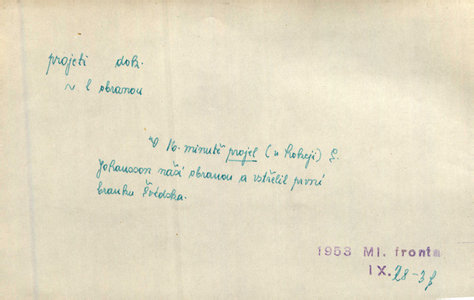 projeti dok.
~ l obranou
V 16. minutě projel (v hokeji) E.
Johansson naší obranou a vstřelil první
branku Švédska.
1953 Ml. fronta
IX. 28-3